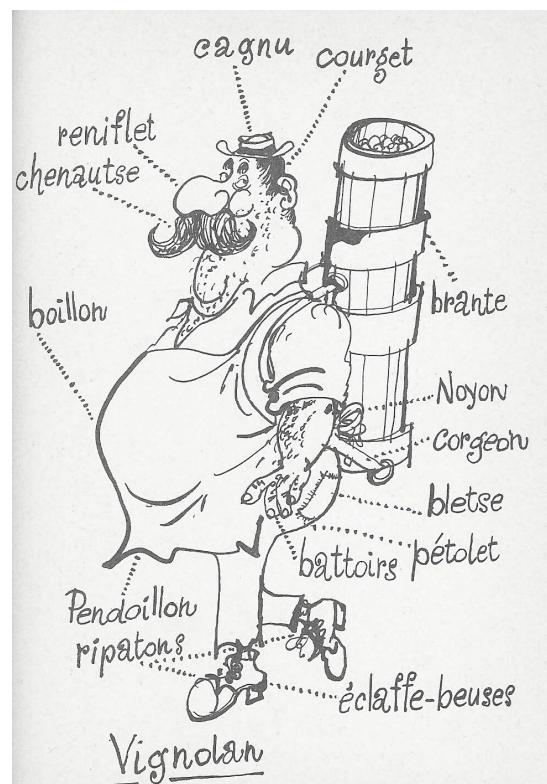 cagnu
courget
reniflet
chenautse
boillon
brante
Noyon
corgeon
bletse
pétolet
battoirs
Pendoillon
ripatons
éclaffe-beuses
Vignolan